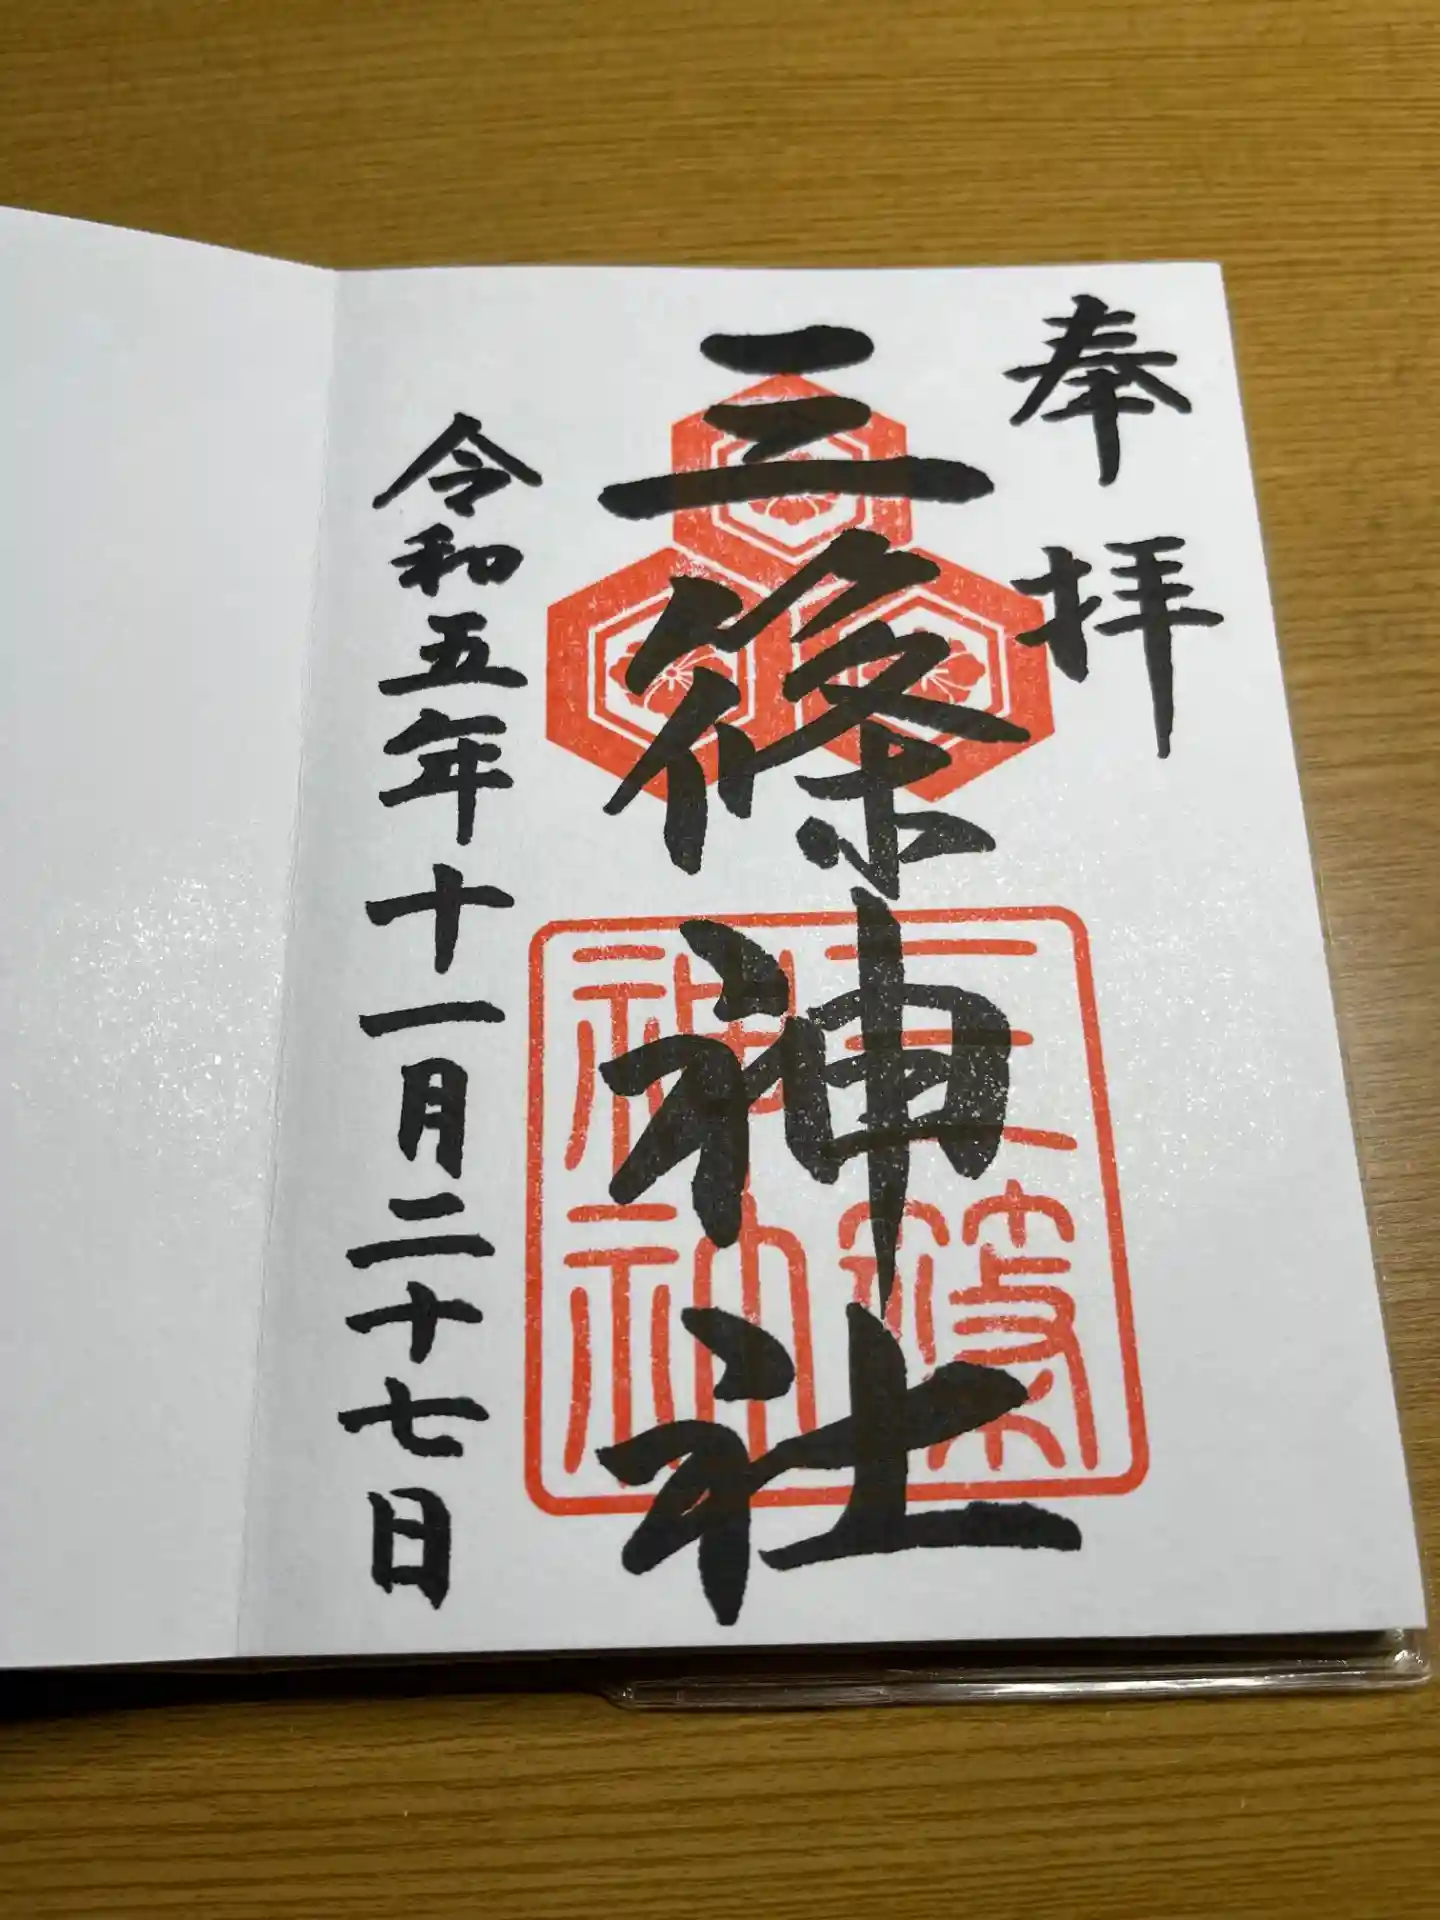 奉拝
三條神社
三條神社
令和五年十一月二十七日